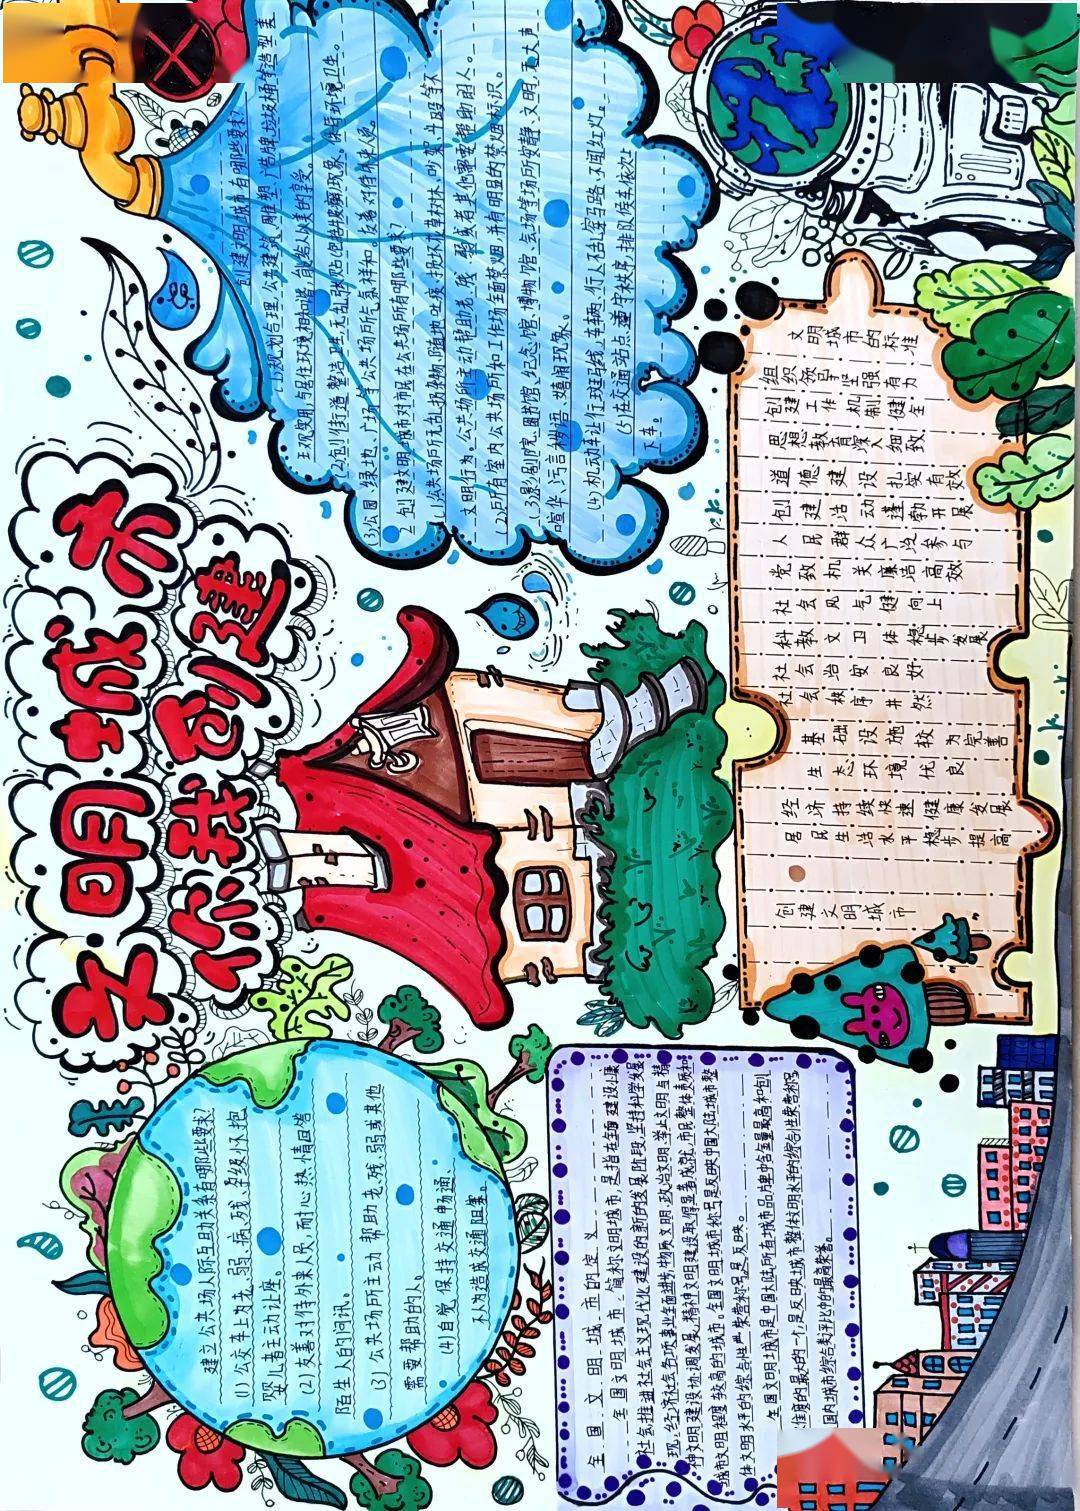 文明城市
你我创建
建立公共场人际互助关系有哪些要求?
(1)公交车上为老、弱、病、残、孕级怀抱
婴儿者主动让座。
(2)友善对待外来人员,耐心热情回答
陌生人的问讯。
(3)公共场所主动帮助老、残、弱或其他
需要帮助的人。
(4)自觉保持交通畅通、
不人为造成交通阻塞。
创建文明城市有哪些要求?
(1)规划合理,公共建筑、雕塑、广告牌、垃圾桶等造型美
观实用,与居住环境相和谐,能给人以美的享受。
(2)街道整洁卫生,无乱张贴
(3)公园、绿地、广场等公共场所气氛祥和。友善对待外来人员。
2、创建文明城市对市民在公共场所有哪些要求?
(1)公共场所无乱扔杂物、随地吐痰、损坏花草树木、吵架、斗殴等不
文明行为。公共场所主动帮助老、残、弱或者其他需要帮助的人。
(2)所有室内公共场所和工作场全面禁烟,并有明显的禁烟标识。
(3)影剧院、图书馆、纪念馆、博物馆、气场等场所安静、文明,无大声
喧华、污言秽语、嬉闹现象。
(4)机动车让行斑马线,车辆、行人不乱穿马路、不闯红灯。
(5)在交通站点遵守秩序,排队候车依次上
下车。
全国文明城市的定义
全国文明城市,简称文明城市,是指在全面建设小康
社会,推进社会主义现代化建设的新的发展阶段,坚持科学发展
观,经济社会各项事业全面进步,物质文明、政治文明
神文明建设协调发展,精神文明建设取得显著成就,市民整体素质和
城市文明程度较高的城市。全国文明城市称号是反映中国大陆城市整
体文明水平的综合性
全国文明城市是中国大陆所有城市品牌中含金量最高和创
建难度的最大的一个,是反映城市整体文明水平的综合性荣誉称号
国内城市综合类评比中的最高荣誉。
文明城市的标准
组织领导坚强有力
创建工作机制健全
思想教育深入细致
道德建设扎实有效
创建活动蓬勃开展
人民群众广泛参与
党政机关廉洁高效
社会风气健向上
科教文卫体稳步发展
社会治安良好
社会秩序井然
基础设施较为完善
生态环境优良
经济持续快速健康发展
居民生活水平稳步提高
创建文明城市